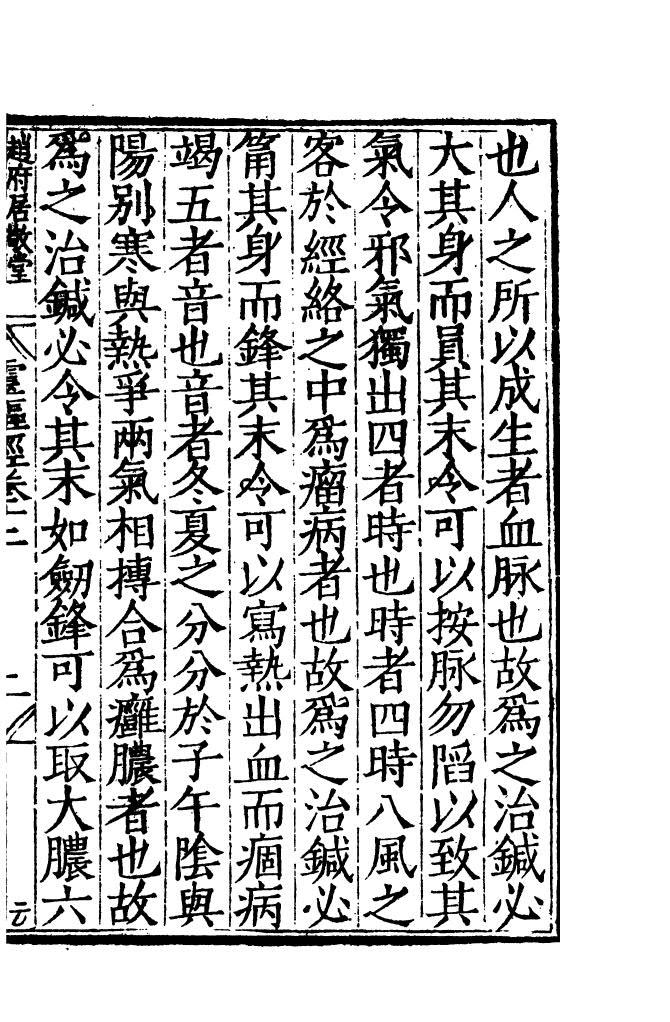 也人之所以成生者血脉也故爲之治鍼必
大其身而員其末令可以按脉勿陷以致其
氣令邪氣獨出四者時也時者四時八風之
客於經絡之中爲瘤病者也故爲之治鍼必
筩其身而鋒其末令可以寫熱出血而痼病
竭五者音也音者冬夏之分分於子午陰與
陽别寒與熱爭兩氣相搏合爲癰膿者也故
爲之治鍼必令其末如劔鋒可以取大膿六
趙府居敬堂 靈樞經卷十二 二